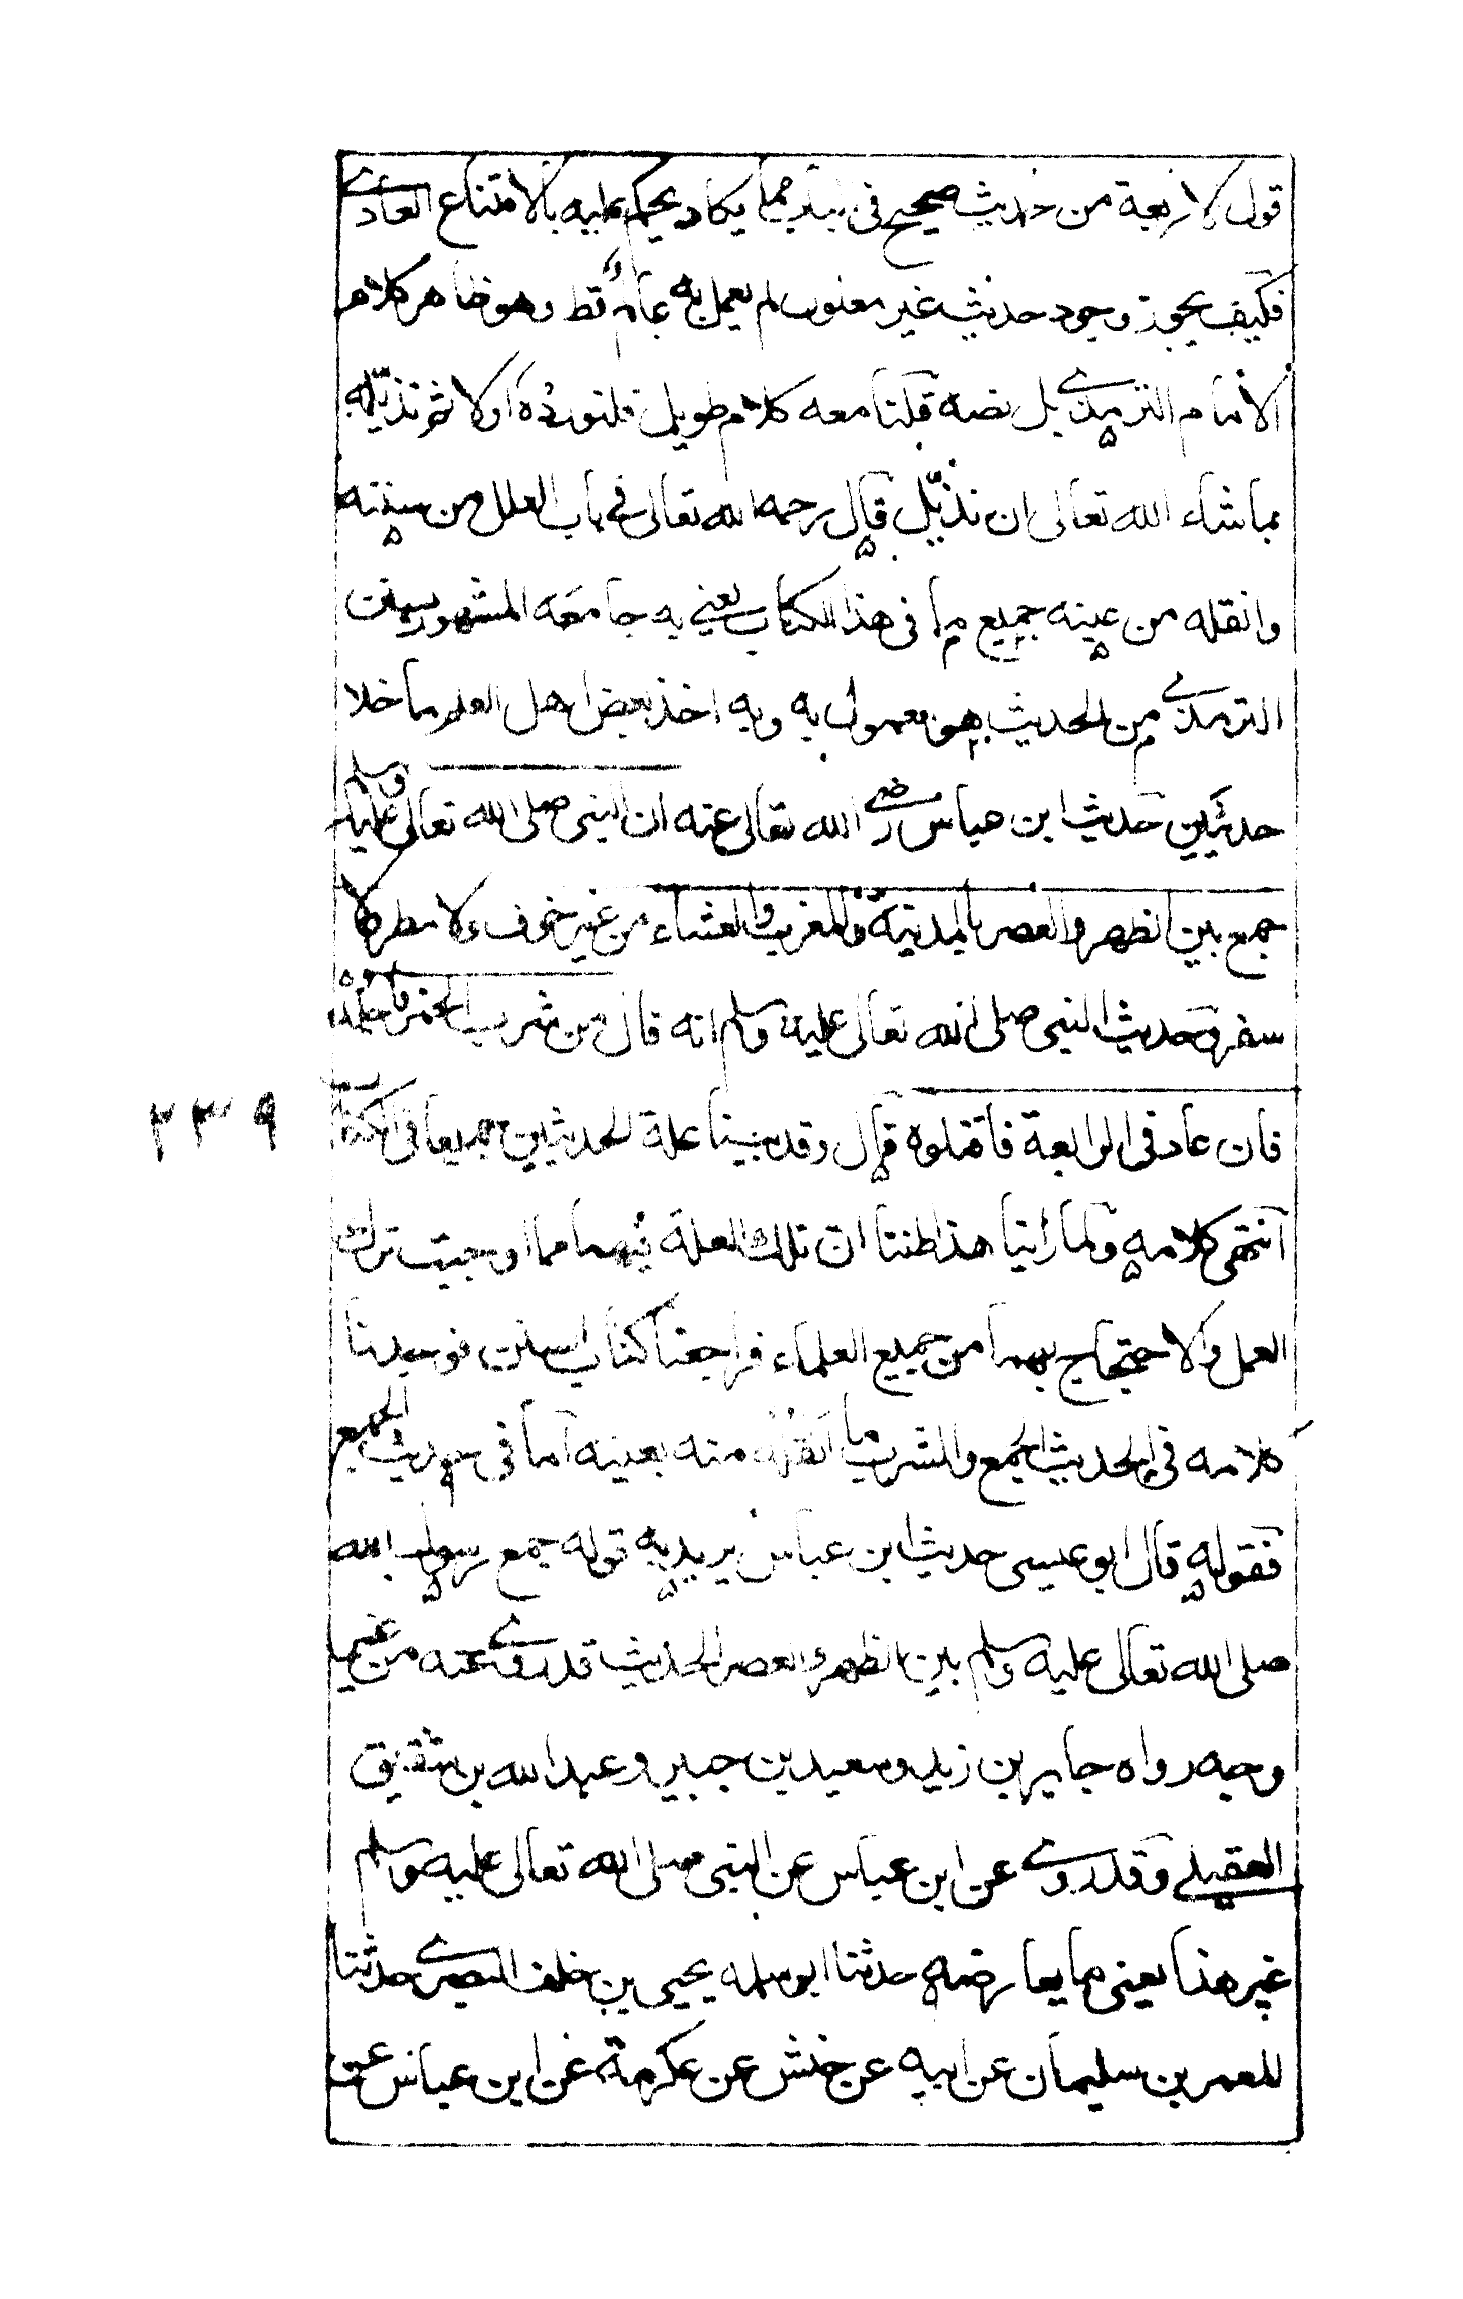 قول الاربعة من حديث صحيح فى باب مما يكاد يحكم عليه بالامتناع العادى
فكيف يجوز وجود حديث غير معلول لم يعمل به عامة قط وهو ظاهر كلام
الامام الترمذى بل نصه قلنا معه كلام طويل فلنورده اولا ثم نذيّله
بماشاء الله تعالى ان نذيّل قال رحمه الله تعالى فى باب العلل من سننه
وانقله من عينه جميع ما فى هذا الكتاب يعنى به جامعه المشهور بسنن
الترمذى من الحديث هو معمول به وبه اخذ بعض اهل العلم ما خلا
حديثين حديث ابن عباس رضى الله تعالى عنه ان النبى صلى الله تعالى عليه وسلم
جمع بين الظهر والعصر بالمدينة والمغرب والعشاء من غير خوف ولا مطر ولا
سفر وحديث النبى صلى الله تعالى عليه وسلم انه قال من شرب الخمر فاجلدوه
فان عاد فى الرابعة فاقتلوه قال وقد بينا علة الحديثين جميعا فى الكتاب
٢٣٩
انتهى كلامه ولما راينا هذا ظننا ان تلك العلة فيهما مما اوجبت ترك
العمل والاحتجاج بهما من جميع العلماء فراجعنا كتاب السنن فوجدنا
كلامه فى الحديث الجمع والشرب ما انقله منه بعينه اما فى حديث الجمع
فقوله قال ابو عيسى حديث ابن عباس يريد به قوله جمع رسول الله
صلى الله تعالى عليه وسلم بين الظهر والعصر الحديث قد روى عنه من غير
وجه رواه جابر بن زيد وسعيد بن جبير وعبد الله بن شقيق
العقيلى وقد روى عن ابن عباس عن النبى صلى الله تعالى عليه وسلم
غير هذا يعنى ما يعارضه حدثنا ابو سلمه يحيى بن خلف البصرى حدثنا
المعمر بن سليمان عن ابيه عن حنش عن عكرمة عن ابن عباس عن